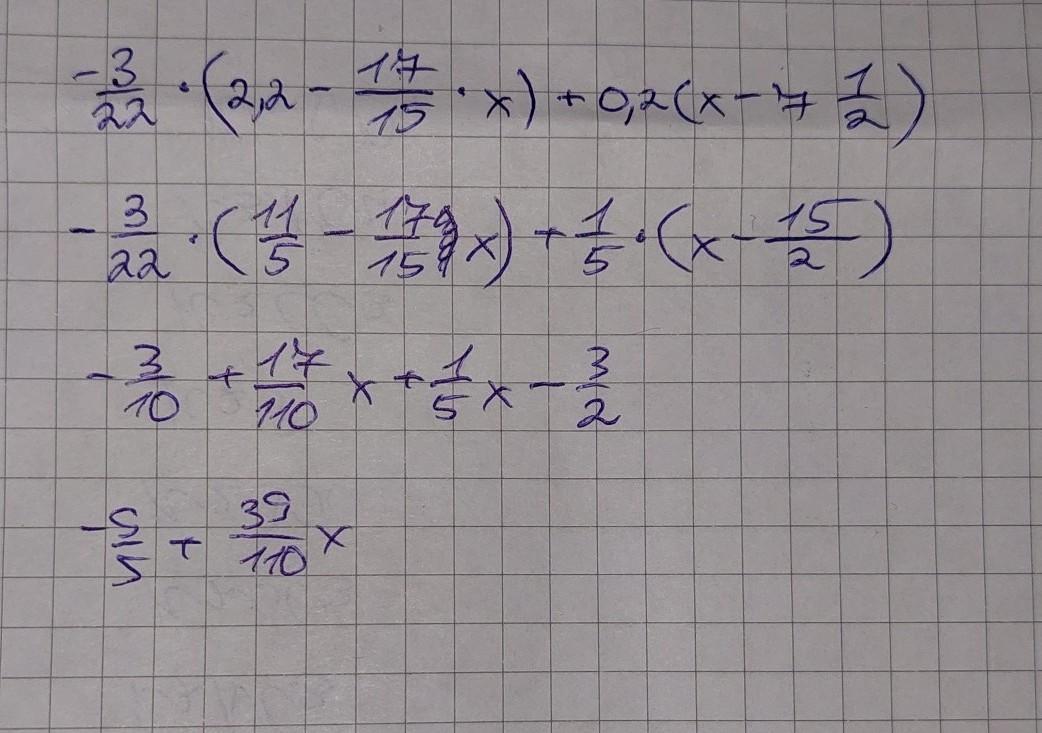 -3/22 · (2,2 - 17/15 · x) + 0,2(x - 7 1/2)
- 3/22 · (11/5 - 17/15 x) + 1/5 · (x - 15/2)
- 3/10 + 17/110 x + 1/5 x - 3/2
-9/5 + 39/110 x